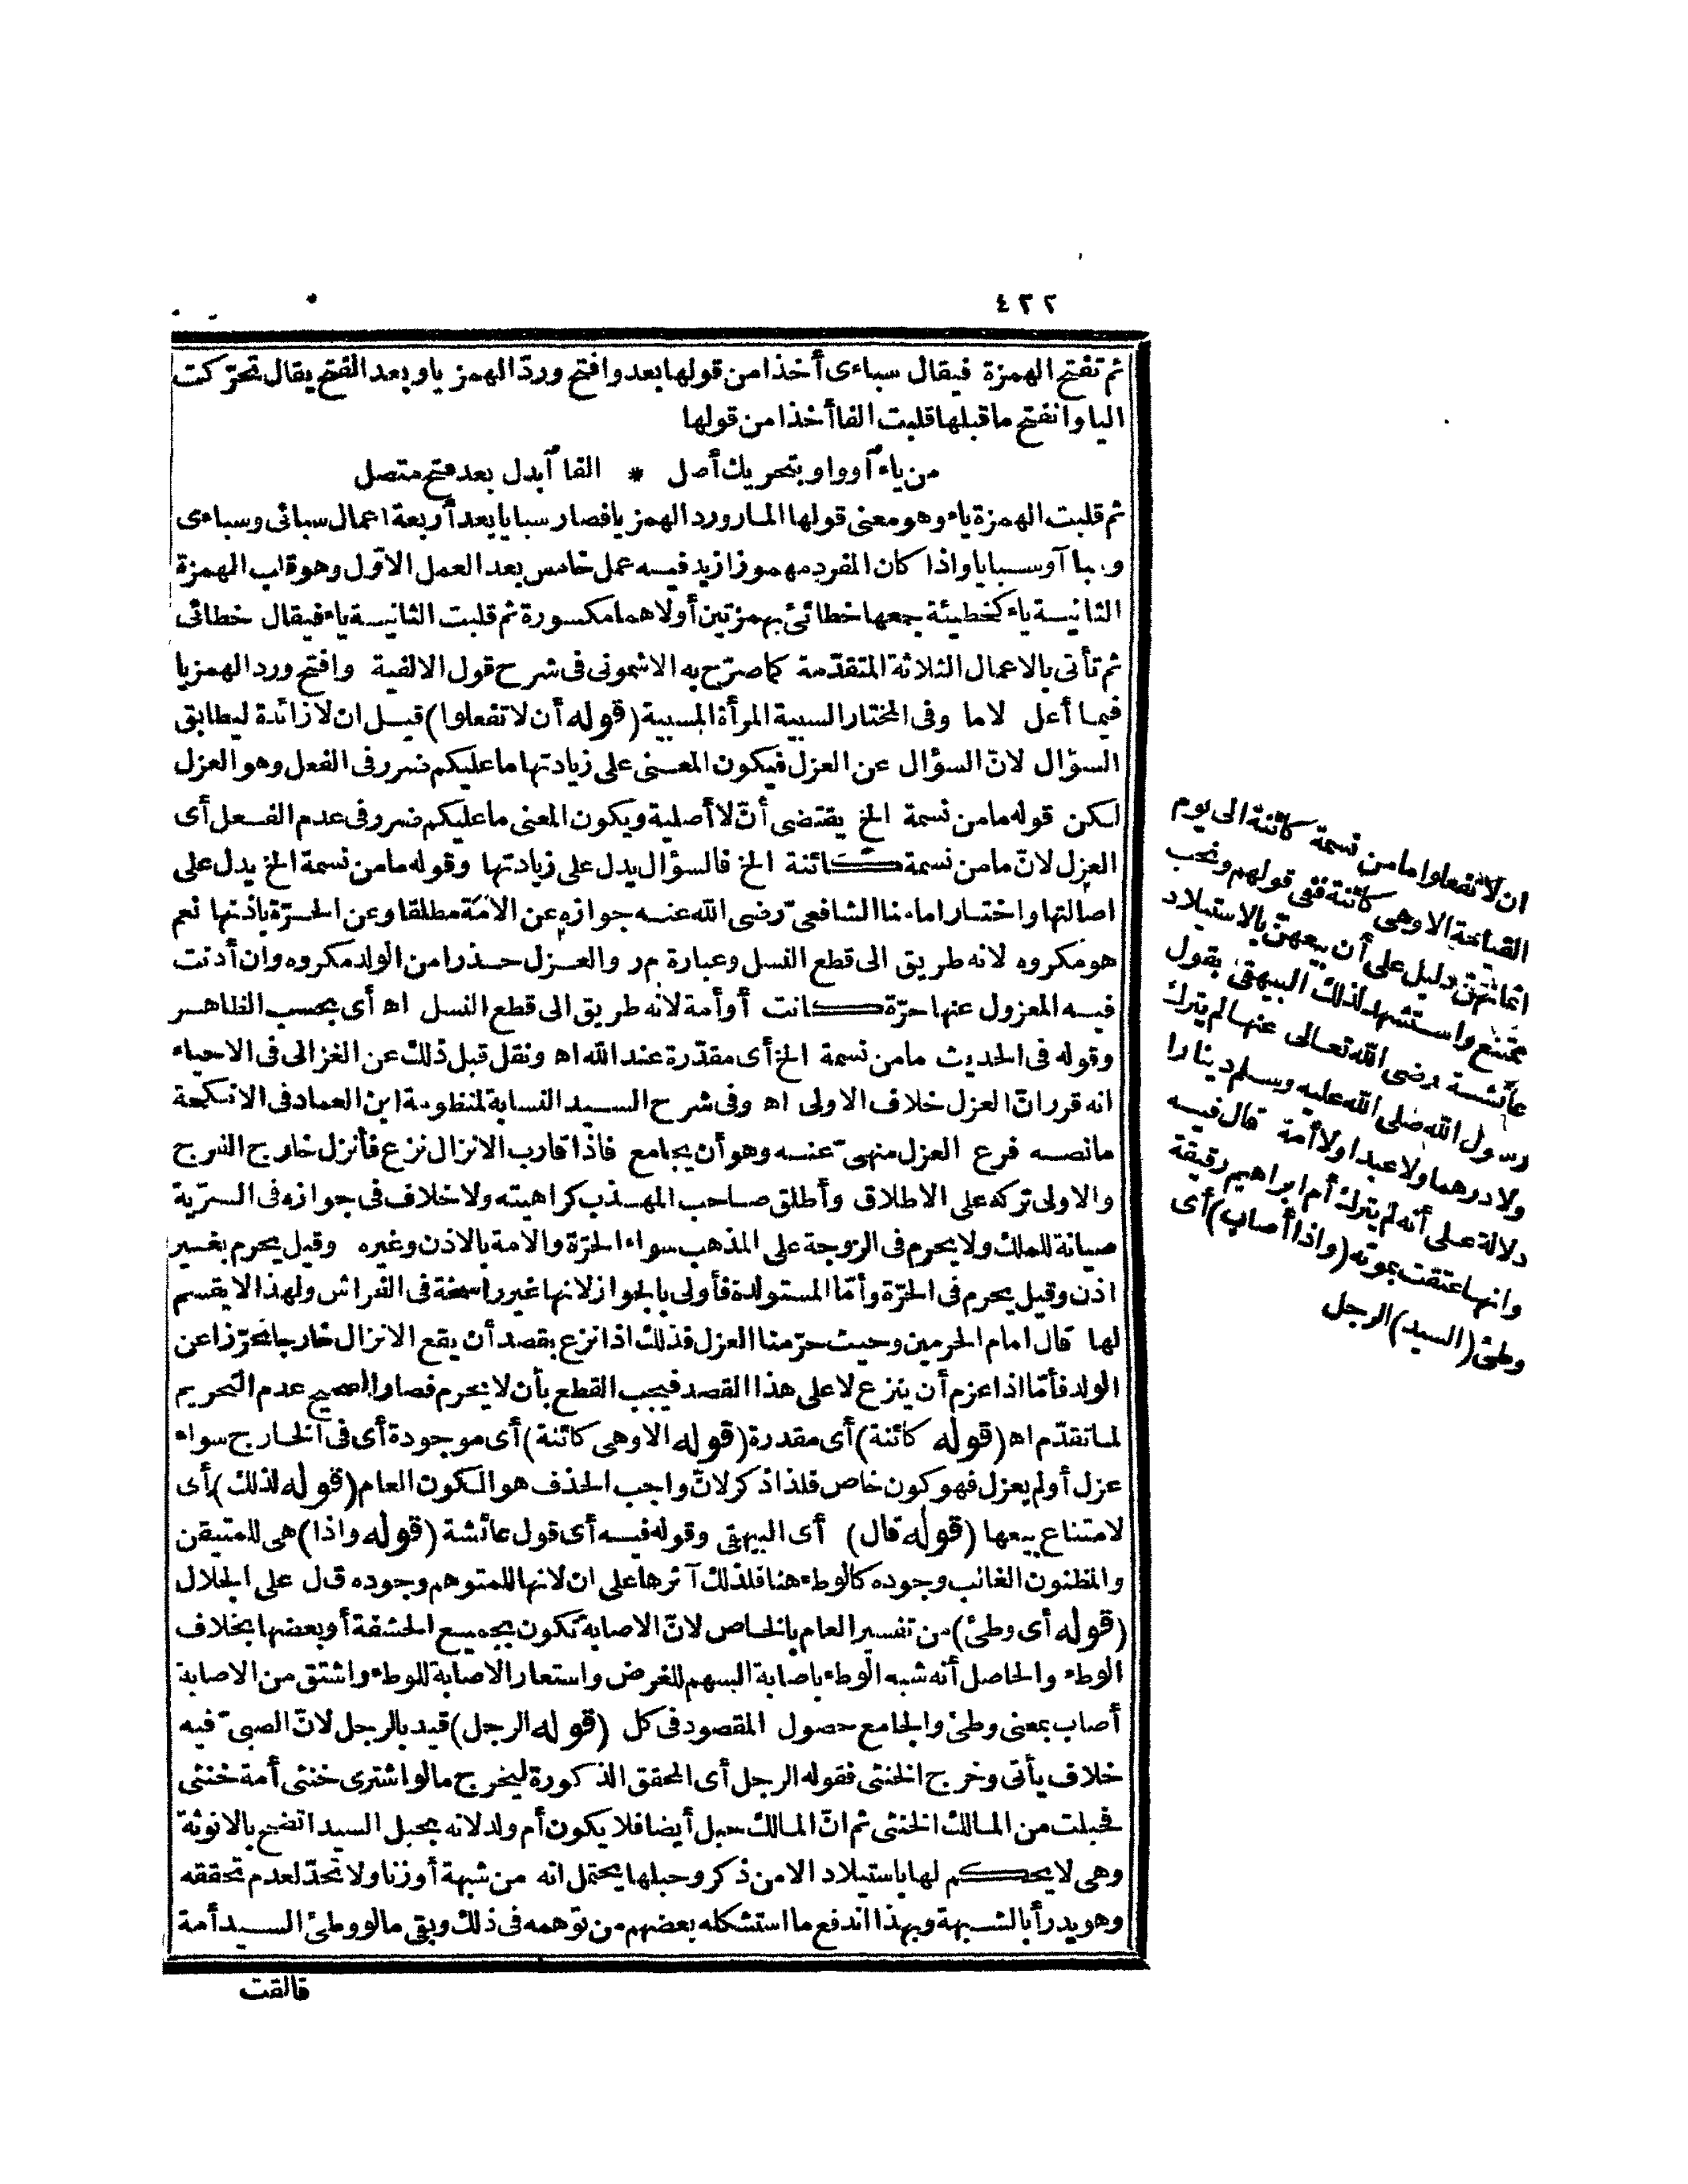 ٤٣٢
ثم تفتح الهمزة فيقال سباءى أخذا من قولها بعد وافتح وردّ الهمز يا وبعد الفتح يقال تحرّكت
اليا وانفتح ما قبلها قلبت الفا أخذا من قولها
من ياء آو واو بتحريك أصل * الفا آبدل بعد فتح متصل
ثم قلبت الهمزة ياء وهو معنى قولها المار ورد الهمز يا فصار سبايا بعد أربعة اعمال سبائى وسباءى
وسباآ وسبايا واذا كان المفرد مهموزا زيد فيه عمل خامس بعد العمل الاوّل وهو قلب الهمزة
الثانية ياء كخطيئة جمعها خطائئ بهمزتين أولاهما مكسورة ثم قلبت الثانية ياء فيقال خطائى
ثم تأتى بالاعمال الثلاثة المتقدّمة كما صرّح به الاشمونى فى شرح قول الالفية وافتح ورد الهمز يا
فيما أعل لاما وفى المختار السبية المرأة المسبية (قوله أن لا تفعلوا) قيل ان لا زائدة ليطابق
السؤال لانّ السؤال عن العزل فيكون المعنى على زيادتها ما عليكم ضرر فى الفعل وهو العزل
لكن قوله ما من نسمة الخ يقتضى أنّ لا أصلية ويكون المعنى ما عليكم ضرر فى عدم الفعل أى
العزل لانّ ما من نسمة كائنة الخ فالسؤال يدل على زيادتها وقوله ما من نسمة الخ يدل على
اصالتها واختار امامنا الشافعىّ رضى الله عنه جوازه عن الامة مطلقا وعن الحرّة باذنها نعم
هو مكروه لانه طريق الى قطع النسل وعبارة م ر والعزل حذرا من الولد مكروه وان أذنت
فيه المعزول عنها حرّة كانت أو أمة لانه طريق الى قطع النسل اه أى بحسب الظاهر
وقوله فى الحديث ما من نسمة الخ أى مقدّرة عند الله اه ونقل قبل ذلك عن الغزالى فى الاحياء
انه قرر انّ العزل خلاف الاولى اه وفى شرح السيد النسابة لمنظومة ابن العماد فى الانكحة
ما نصه فرع العزل منهىّ عنه وهو أن يجامع فاذا قارب الانزال نزع فأنزل خارج الفرج
والاولى تركه على الاطلاق وأطلق صاحب المهذب كراهيته ولا خلاف فى جوازه فى السرّية
صيانة للملك ولا يحرم فى الزوجة على المذهب سواء الحرّة والامة بالاذن وغيره وقيل يحرم بغير
اذن وقيل يحرم فى الحرّة وأمّا المستولدة فأولى بالجواز لانها غير راسخة فى الفراش ولهذا لا يقسم
لها قال امام الحرمين وحيث حرّمنا العزل فذلك اذا نزع بقصد أن يقع الانزال خارجا تحرّزا عن
الولد فأمّا اذا عزم أن ينزع لا على هذا القصد فيجب القطع بأن لا يحرم فصار الصحيح عدم التحريم
لما تقدّم اه (قوله كائنة) أى مقدرة (قوله الا وهى كائنة) أى موجودة أى فى الخارج سواء
عزل أو لم يعزل فهو كون خاص فلذا ذكر لانّ واجب الحذف هو الكون العام (قوله لذلك) أى
لامتناع بيعها (قوله قال) أى البيهقى وقوله فيه أى قول عائشة (قوله واذا) هى للمتيقن
والمظنون الغالب وجوده كالوطء هنا فلذلك آثرها على ان لانها للمتوهم وجوده ق ل على الجلال
(قوله أى وطئ) من تفسير العام بالخاص لانّ الاصابة تكون بجميع الحشفة أو بعضها بخلاف
الوطء والحاصل أنه شبه الوطء باصابة السهم للغرض واستعار الاصابة للوطء واشتق من الاصابة
أصاب بمعنى وطئ والجامع حصول المقصود فى كل (قوله الرجل) قيد بالرجل لانّ الصبىّ فيه
خلاف يأتى وخرج الخنثى فقوله الرجل أى المحقق الذكورة ليخرج ما لو اشترى خنثى أمة خنثى
فحبلت من المالك الخنثى ثم انّ المالك حبل أيضا فلا يكون أم ولد لانه بحبل السيد اتضح بالانوثة
وهى لا يحكم لها باستيلاد الا من ذكر وحبلها يحتمل انه من شبهة أو زنا ولا تحدّ لعدم تحققه
وهو يدرأ بالشبهة وبهذا اندفع ما استشكله بعضهم من توهمه فى ذلك وبقى ما لو وطئ السيد أمة
فالقت
ان لا تفعلوا ما من نسمة كائنة الى يوم
القيامة الا وهى كائنة ففى قولهم ونحب
اثمانهنّ دليل على أن بيعهنّ بالاستيلاد
ممتنع واستشهد لذلك البيهقى بقول
عائشة رضى الله تعالى عنها لم يترك
رسول الله صلى الله عليه وسلم دينارا
ولا درهما ولا عبدا ولا أمة قال فيه
دلالة على أنه لم يترك أم ابراهيم رقيقة
وانها عتقت بموته (واذا أصاب) أى
وطئ (السيد) الرجل